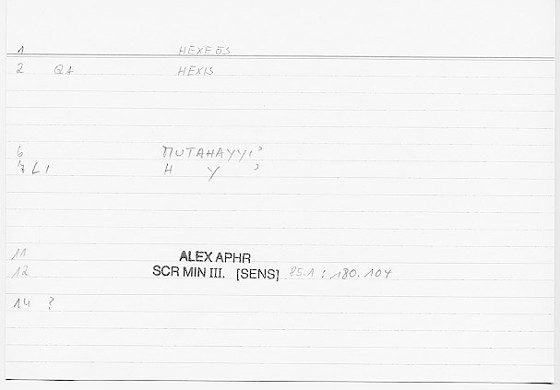 1 HEXEŌS
2 QA HEXIS
6 MUTAHAYYI'
7 LI H Y '
11 ALEX APHR
12 SCR MIN III. [SENS] 85.1 : 180.104
14 ?